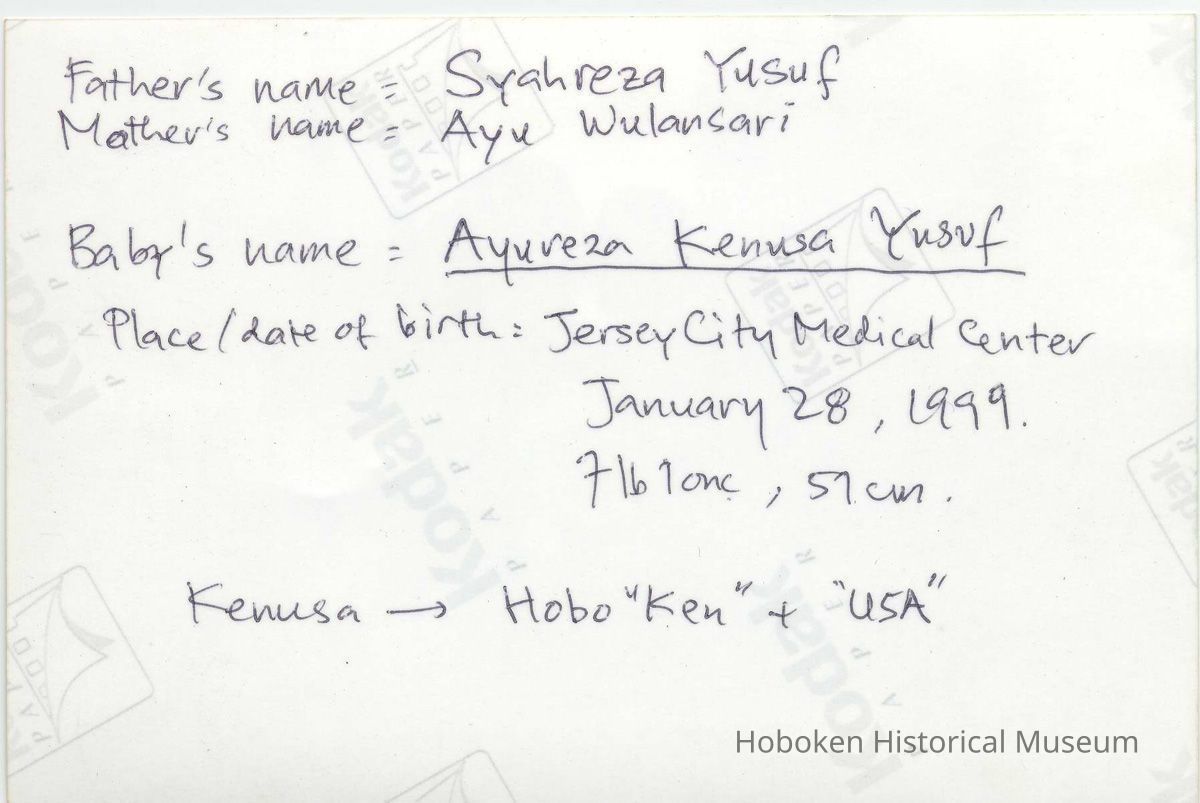 Father's name = Syahreza Yusuf
Mother's name = Ayu Wulansari
Baby's name = Ayureza Kenusa Yusuf
Place/date of birth = Jersey City Medical Center
January 28, 1999.
7 lb 1 onc, 51 cm.
Kenusa → Hobo "Ken" + "USA"
Kodak
PAPER
Hoboken Historical Museum